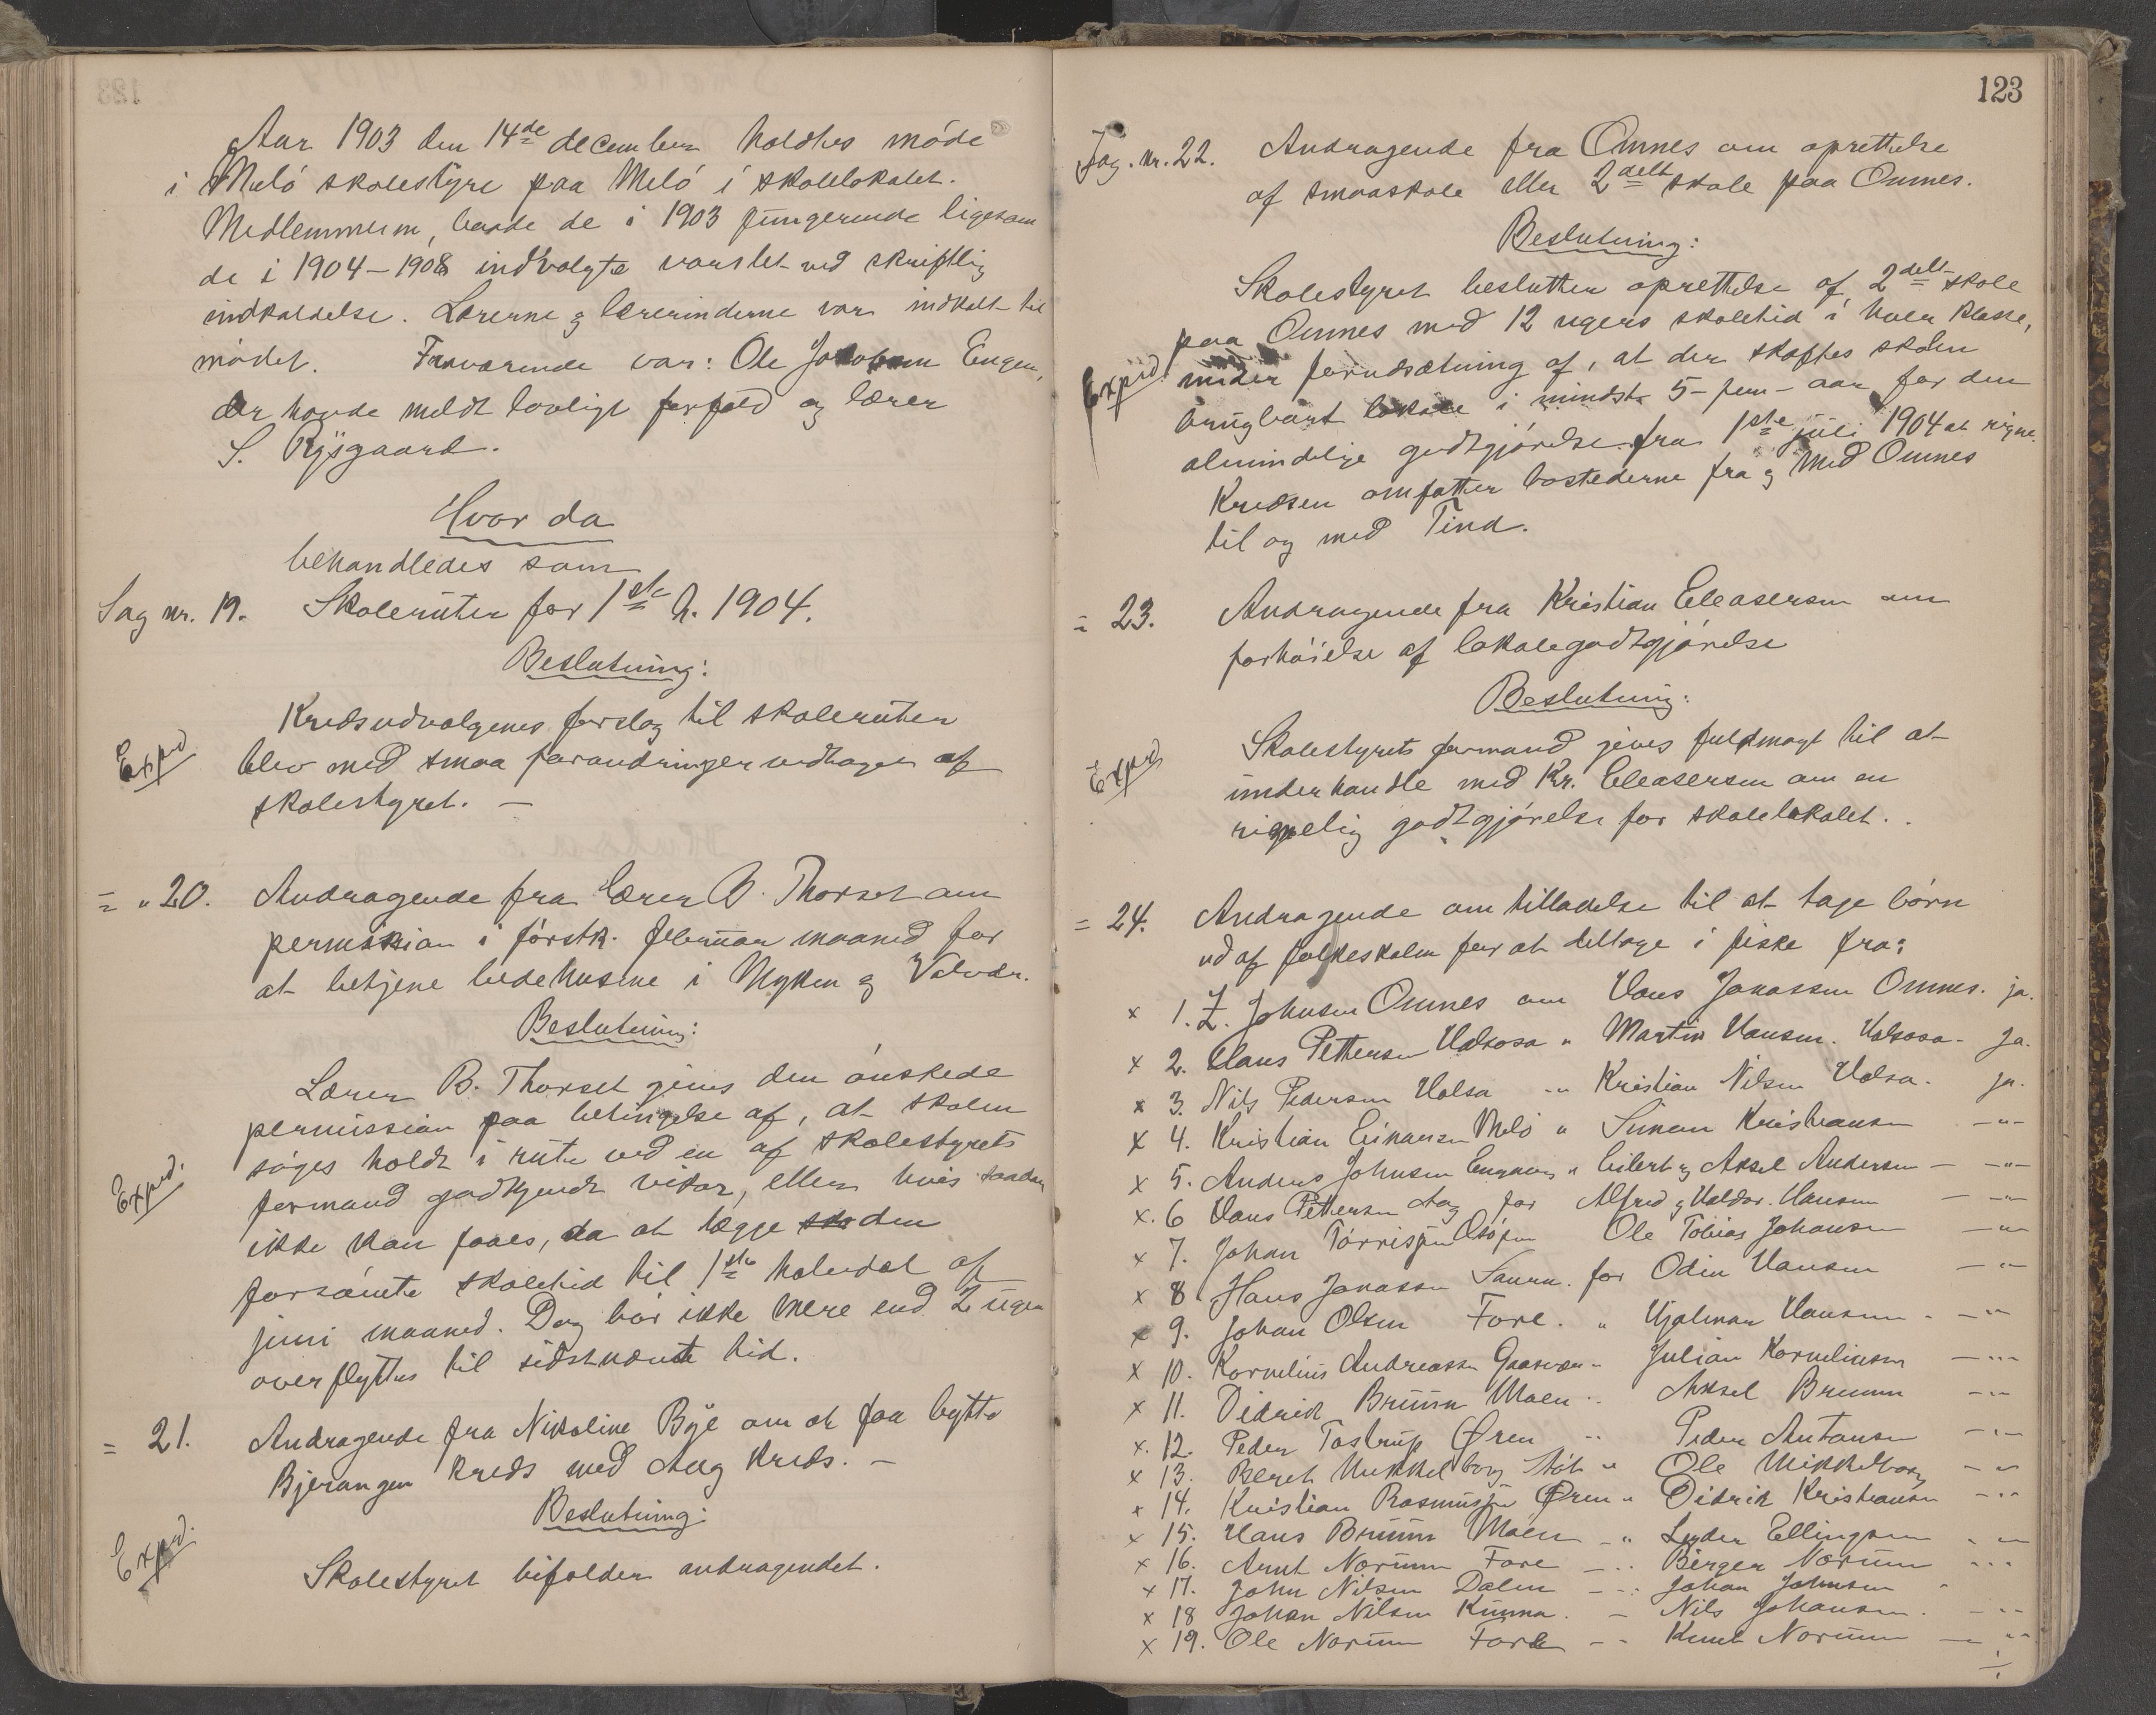 Aar 1903 den 14de december holdtes møde
i Melø skolestyre paa Melø i skolelokalet.
Medlemmerne, baade de i 1903 fungerende ligesom
de i 1904-1908 indvalgte varslet ved skriftlig
indkaldelse. Lærerne & lærerinderne var indkaldt til
mødet. Fraværende var: Ole Jakobsen Engen,
der havde meldt lovligt forfald og lærer
S. Rysgaard.
Hvor da
behandledes som
Sag nr. 19. Skoleruter for 1ste h. 1904.
Beslutning:
Kredsudvalgenes forslag til skoleruter
Exped
blev med smaa forandringer vedtaget af
skolestyret. —
= " 20. Andragende fra lærer B. Thorset om
permission i førstk. februar maaned for
at betjene bedehusene i Myken & Valvær.
Beslutning:
Lærer B. Thorset gives den ønskede
permission paa betingelse af, at skolen
søges holdt i rute ved en af skolestyrets
Exped.
formand godkjendt vikar, eller hvis saadan
ikke kan faaes, da at lægge den
forsømte skoletid til 1ste halvdel af
juni maaned. Dog bør ikke mere end 2 uger
overflyttes til sidstnævnte tid.
= 21. Andragende fra Nikoline Bye om at faa bytte
Bjerangen kreds med Aag kreds. —
Beslutning:
Exped.
Skolestyret bifalder andragendet.
123
Sag. nr. 22. Andragende fra Ømnes om oprettelse
af smaaskole eller 2delt skole paa Ømnes.
Beslutning:
Skolestyret beslutter oprettelse af 2delt skole
paa Ømnes med 12 ugers skoletid i hver klasse,
Exped
under forudsætning af, at der skaffes skolen
brugbart lokale i mindst 5-fem- aar for den
almindelige godtgjørelse fra 1ste juli 1904 at regne.
Kredsen omfatter bostederne fra & med Ømnes
til og med Tind.
= 23. Andragende fra Kristian Eleasersen om
forhøielse af lokalegodtgjørelse
Beslutning:
Skolestyrets formand gives fuldmagt til at
Exped
underhandle med Kr. Eleasersen om en
rimelig godtgjørelse for skolelokalet.
= 24. Andragende om tilladelse til at tage børn
ud af folkeskolen for at deltage i fiske fra:
x 1. Z. Johnsen Ømnes om Hans Jonassen Ømnes. ja.
x 2. Hans Pettersen Halsosa " Martin Hansen. Halsosa - ja.
x 3. Nils Pedersen Halsa -"- Kristian Nilsen Halsa. ja.
x 4. Kristian Einarsen Melø " Simon Kristiansen -"-
x 5. Anders Johnsen Engavaag " Eilert & Aksel Andersen — -"-
x. 6 Hans Pettersen Aag for Alfred & Haldor. Hansen — -"-
x 7. Johan Tørrissen Ole Tobias Johansen — -"-
x 8 Hans Jonassen Saura. for Odin Hansen — "
x 9. Johan Olsen Fore. " Hjalmar Hansen - — "
x 10. Kornelius Andreassen Gaasvær " Julian Korneliussen — "
x 11. Didrik Bruun Moen " Aksel Bruun — "
x. 12. Peder Tostrup Øren " Peder Antonsen — "
x 13. Beret Mikkelborg Støt " Ole Mikkelborg — "
x 14. Kristian Rasmussen Øren " Didrik Kristiansen — "
x 15. Hans Bruun Moen - " Lyder Ellingsen - "
x 16. Arnt Norum Fore — " Birger Norum - "
x 17. John Nilsen Dalen — " Johan Johnsen "
x 18 Johan Nilsen Kunna. — Nils Johansen. - "
x 19. Ole Norum Fore — " Knut Norum — "